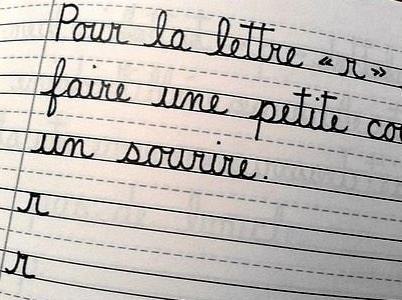 Pour la lettre « r »
faire une petite
un sourire.
r
r